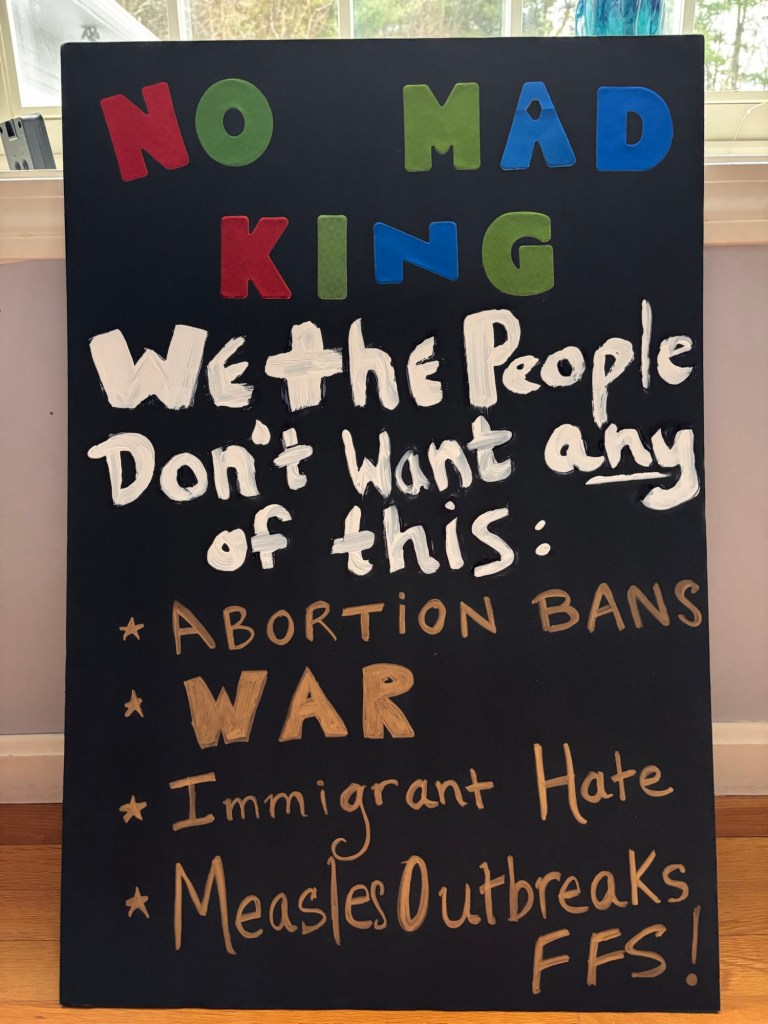 NO MAD
KING
WE the People
Don't Want any
of this:
* ABORTiON BANS
* WAR
* Immigrant Hate
* Measles Outbreaks
FFS!